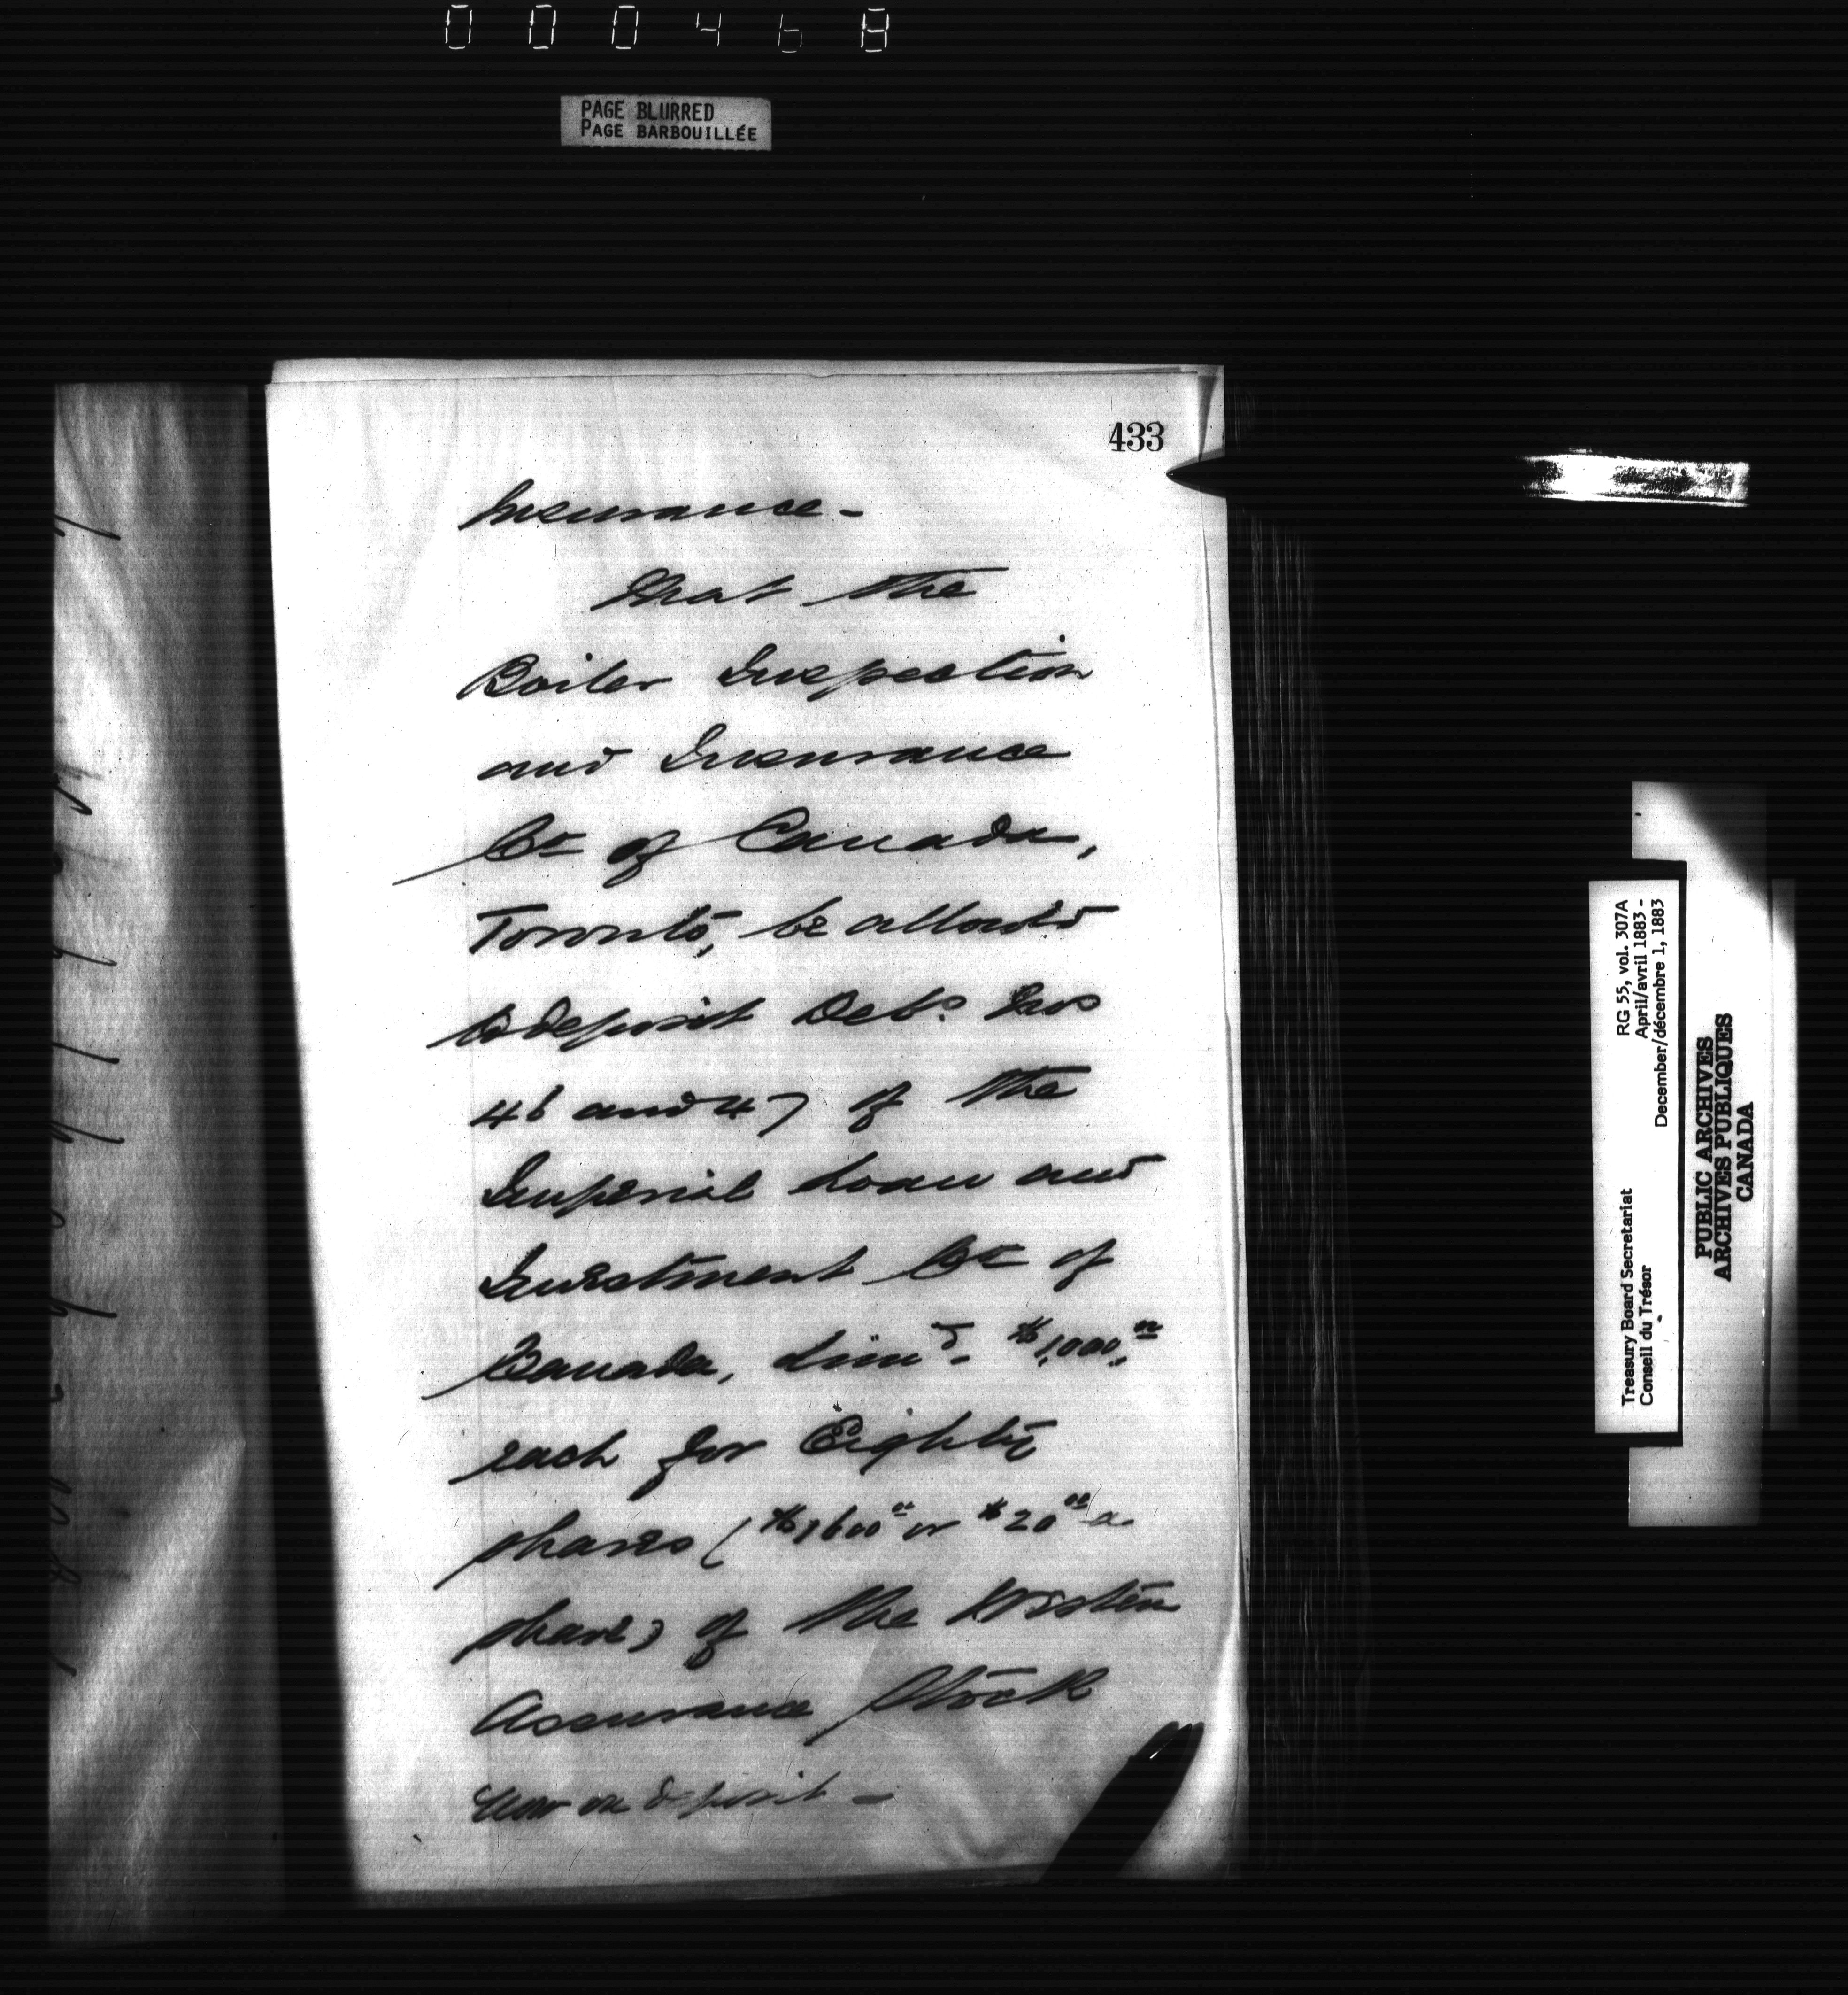 000468
PAGE BLURRED
PAGE BARBOUILLÉE
433
Insurance -
That the
Boiler Inspection
and Insurance
Co of Canada,
Toronto, be allowed
to deposit Debs. Nos
46 and 47 of the
Imperial Loan and
Investment Co of
Canada, Limd. $1,000.00
each for Eighty
shares ($1600 00 or $20 00 a
share) of the Western
Assurance Stock
now on deposit -
RG 55, vol. 307A
April/avril 1883 -
December/décembre 1, 1883
Treasury Board Secretariat
Conseil du Trésor
PUBLIC ARCHIVES
ARCHIVES PUBLIQUES
CANADA